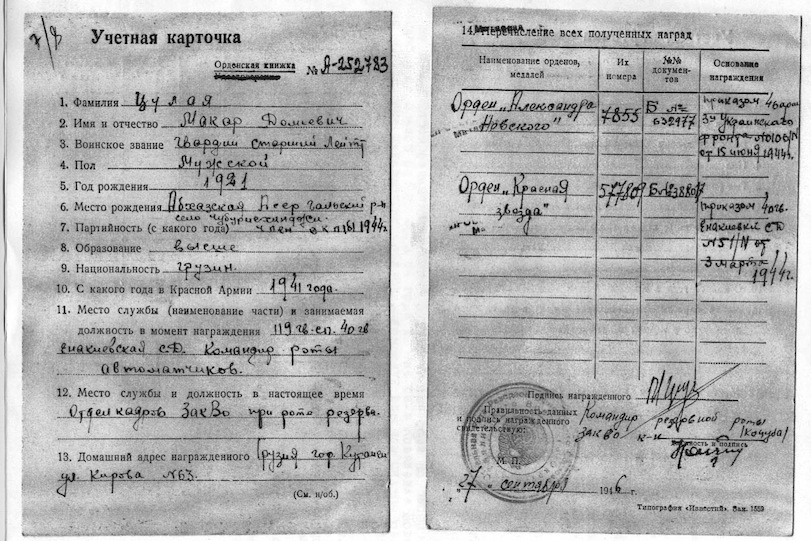 7/8
Учетная карточка
Орденская книжка
№ А-252783
1. Фамилия Цулая
2. Имя и отчество Макар Домкевич
3. Воинское звание Гвардии старший Лейт
4. Пол Мужской
5. Год рождения 1921
6. Место рождения Абхазская АССР Гальский р-н
село Чубурисхинджи.
7. Партийность (с какого года) член ВКП(б) 1944г
8. Образование высшее
9. Национальность грузин.
10. С какого года в Красной Армии 1941 года.
11. Место службы (наименование части) и занимаемая
должность в момент награждения 119 гв. сп. 40 гв
Енакиевская с.Д. Командир роты
автоматчиков.
12. Место службы и должность в настоящее время
Отдел кадров ЗакВо при роте резерва.
13. Домашний адрес награжденного Грузия гор.
ул. Кирова №63.
(См. н/об.)
14. Перечисление всех полученных наград
Наименование орденов, медалей
Их номера
№№ документов
Основание награждения
Орден „Александра Невского"
7855
Б №
632977
приказом 46 арм
3 Украинского
фронта
от 15 июня 1944г.
Орден „Красная звезда"
577809
приказом 40 гв.
Енакиевкой с.Д
№51/N от
3 марта
1944г.
Подпись награжденного
Правильность данных
и подпись награжденного
свидетельствую:
Командир резервной роты
ЗакВо к-н /Кочуба/
Должность и подпись
М. П.
„27" сентября 1946 г.
Типография «Известий». Зак. 1559